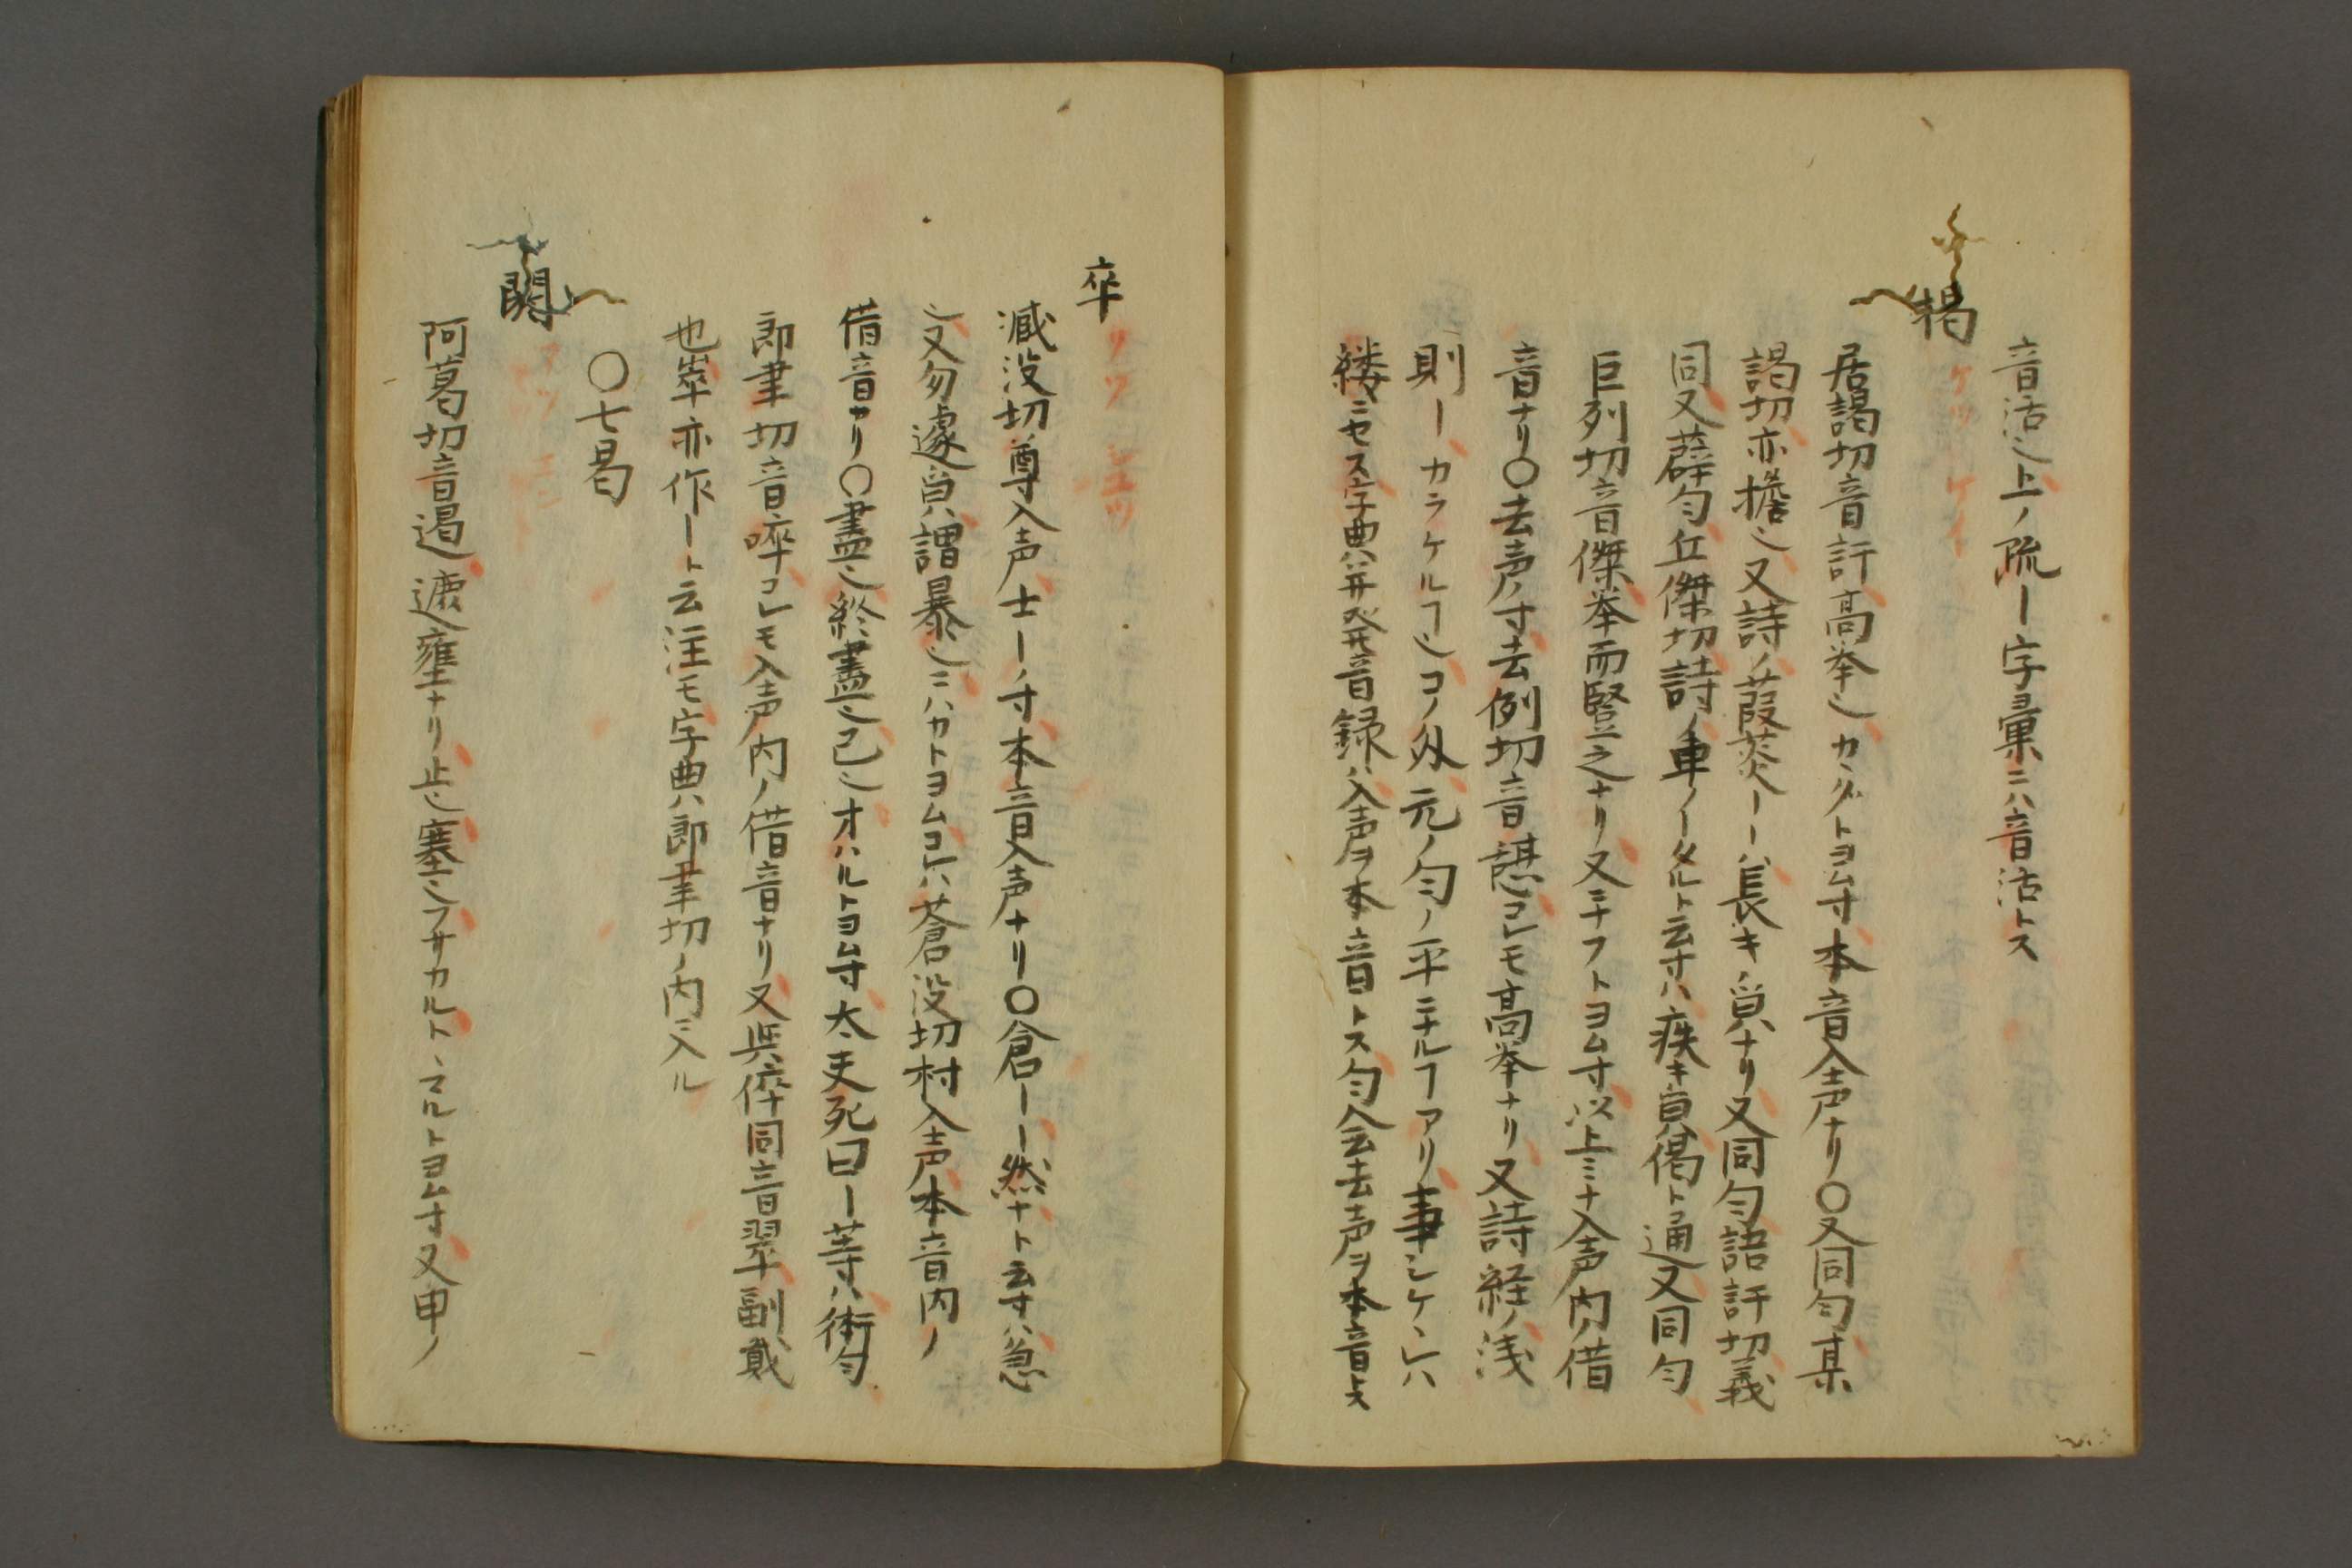 音活〻上ノ疏ー字彙ニハ音活トス
揭 ケツ ケイ
居謁切音訐高挙〻カヽクトヨム寸本音入声ナリ〇又同匀其
謁切亦擔〻又詩ノ葭菼ーーハ長キノ㒵ナリ又同匀語訐切義
同又薛匀丘傑切詩ノ車ノータルト云寸ハ疾キ㒵偈ト通又同匀
巨列切音傑挙而竪之ナリ又ミナフトヨム寸以上ミナ入声内ノ借
音ナリ〇去声ノ寸去例切音憩コレモ高挙ナリ又詩経ノ浅
則ーカラケルヿ〻コノ外元ノ匀ノ平ニナルヿアリ事シケヽレハ
縷ニセス字典ハ并発音録ハ入声ヲ本音トス匀会去声ヲ本音トス
卒 ソツ シユツ
減没切尊入声士ーノ寸本音入声ナリ〇倉ーー然ナト云寸ハ急
〻又勿遽㒵ハ謂暴〻ニハカトヨムコレハ蒼没切村入声本音内ノ
借音ナリ〇盡〻終盡〻已〻オハルトヨム寸大夫死曰ー等ハ術匀
即聿切音啐コレモ入声内ノ借音ナリ又與倅同音翠副貳
也崒亦作ート云注モ字典ハ即聿切ノ内ニ入ル
〇七曷
閼 アツ エン
阿葛切音遏遮壅ナリ止〻塞〻フサカルトヽマルトヨム寸又申ノ